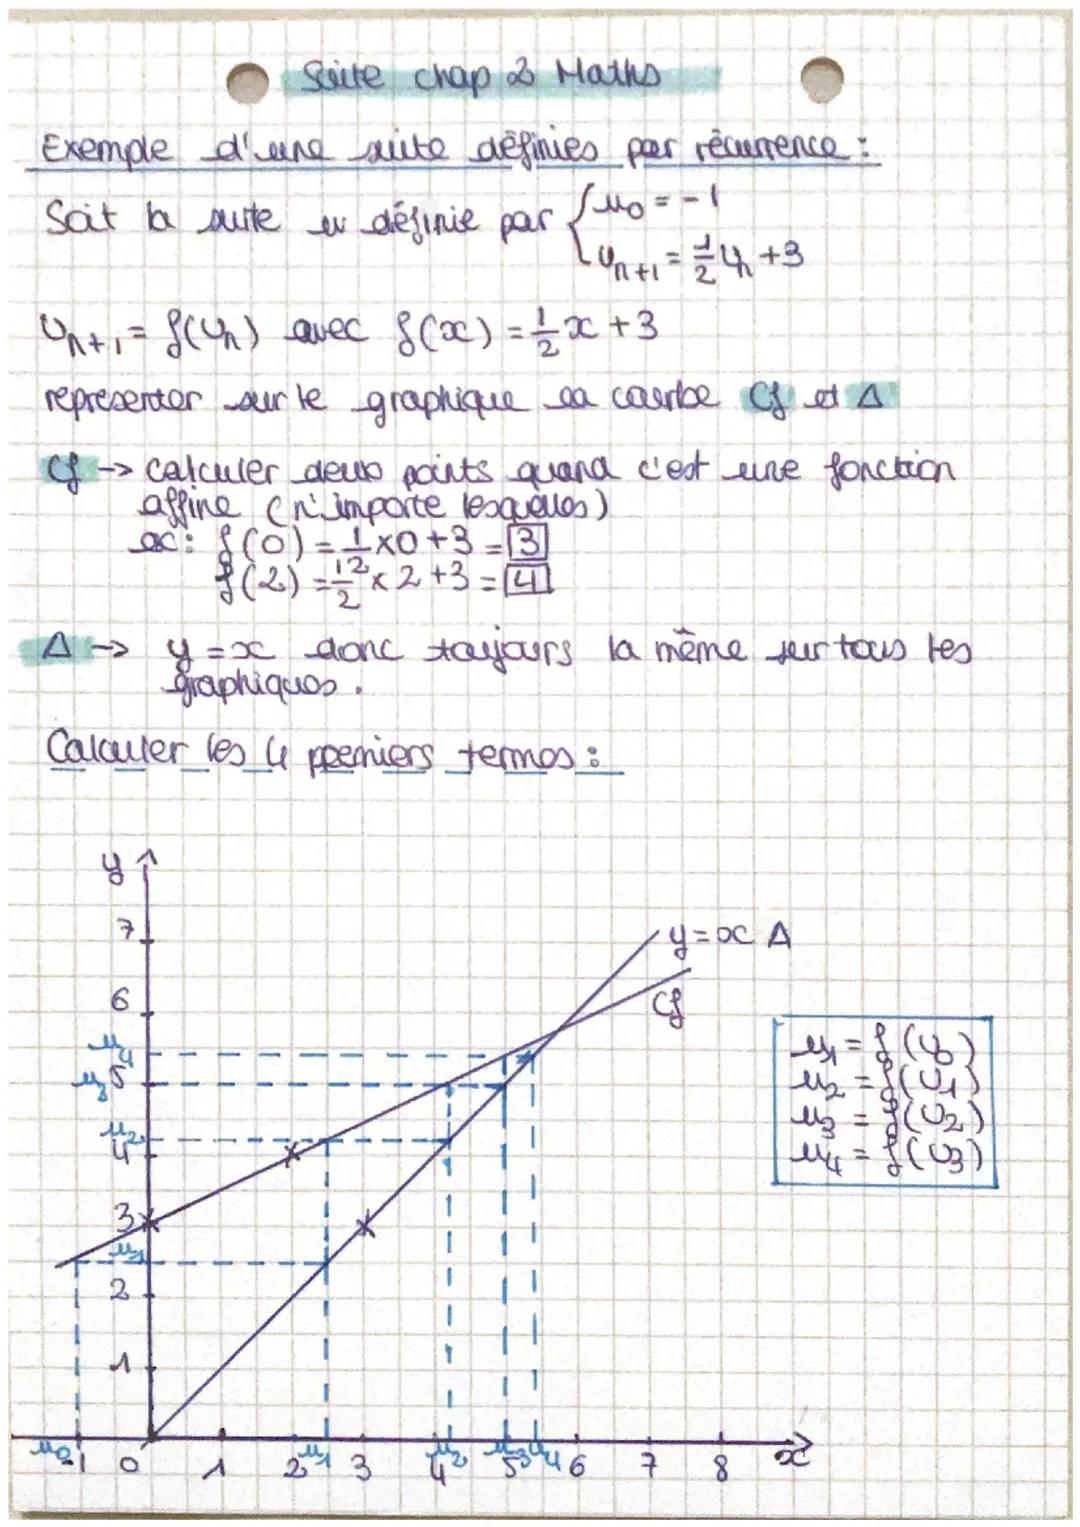 Suite chap 2 Maths
Exemple d'une suite définies par récurrence :
Soit la suite u définie par { u₀ = -1
uₙ₊₁ = 1/2 uₙ + 3
Uₙ₊₁ = f(Uₙ) avec f(x) = 1/2 x + 3
représenter sur le graphique la courbe Cf et Δ
Cf → calculer deux points quand c'est une fonction
affine (n'importe lesquelles)
ex : f(0) = 1/2 × 0 + 3 = 3
f(2) = 1/2 × 2 + 3 = 4
Δ → y = x donc toujours la même sur tous les
graphiques.
Calculer les 4 premiers termes :
y
7
y = x Δ
6
Cf
u₄
u₃ 5
u₂
4
3
u₁
2
1
u₁ = f(U₀)
u₂ = f(U₁)
u₃ = f(U₂)
u₄ = f(U₃)
u₀ u₁ u₂ u₃ u₄
-1 0 1 2 3 4 5 6 7 8 x